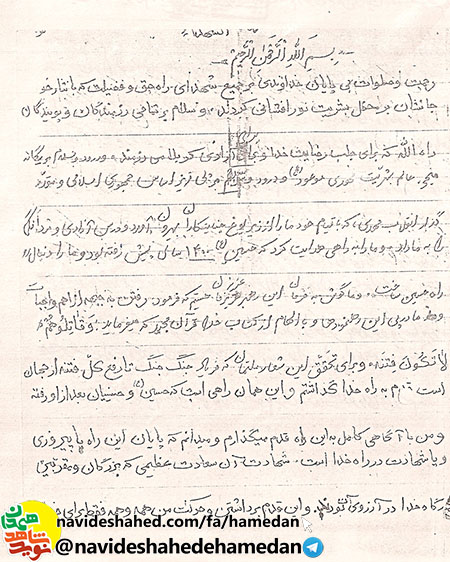 بسم الله الرحمن الرحیم
رحمت و صلوات بی پایان خداوندی بر جمیع شهدای راه حق و فضیلت که با نثار خون
جانشان بر محفل بشریت نور افشانی کردند، و سلام بر تمامی رزمندگان و پویندگان
راه الله که برای جلب رضایت خدا و برای آزادی کربلا می رزمند و درود و سلام بر یگانه
منجی عالم بشریت مهدی موعود (عج) و درود و سلام بر جمهوری اسلامی و
گذار انقلاب مهدی، که با قیام خود ما را از زیر یوغ بیرون آورد و درس آزادی و مردانگی
را به ما داد، و ما را به راهی هدایت کرد که حسین (ع) ۱۴۰۰ سال پیش رفته بود و ما را دنبال
راه حسین ساخت، و ما گوش به فرمان این رهبر هستیم که فرمود رفتن به جبهه از اهم واجبات
و ما در پی این رهنمودها و با الهام از کتاب خدا قرآن مجید که میفرماید: و قاتلوهم
لا تکون فتنه، و برای تحقق این شعار ملتمان که فریاد جنگ جنگ تا رفع کل فتنه از جهان
است قدم به راه خدا گذاشتم و این همان راهی است که حسین (ع) و حسینیان بعد از او رفتند
و من با آگاهی کامل به این راه قدم میگذارم و میدانم که پایان این راه یا پیروزی
و یا شهادت در راه خدا است. شهادت آن سعادت عظیمی که بزرگان و مقربین
درگاه خدا در آرزوی آن بودند. و این قدم برداشتن و حرکت من همه و همه فقط برای
نوید شاهد همدان
navideshahed.com/fa/hamedan
@navideshahedehamedan